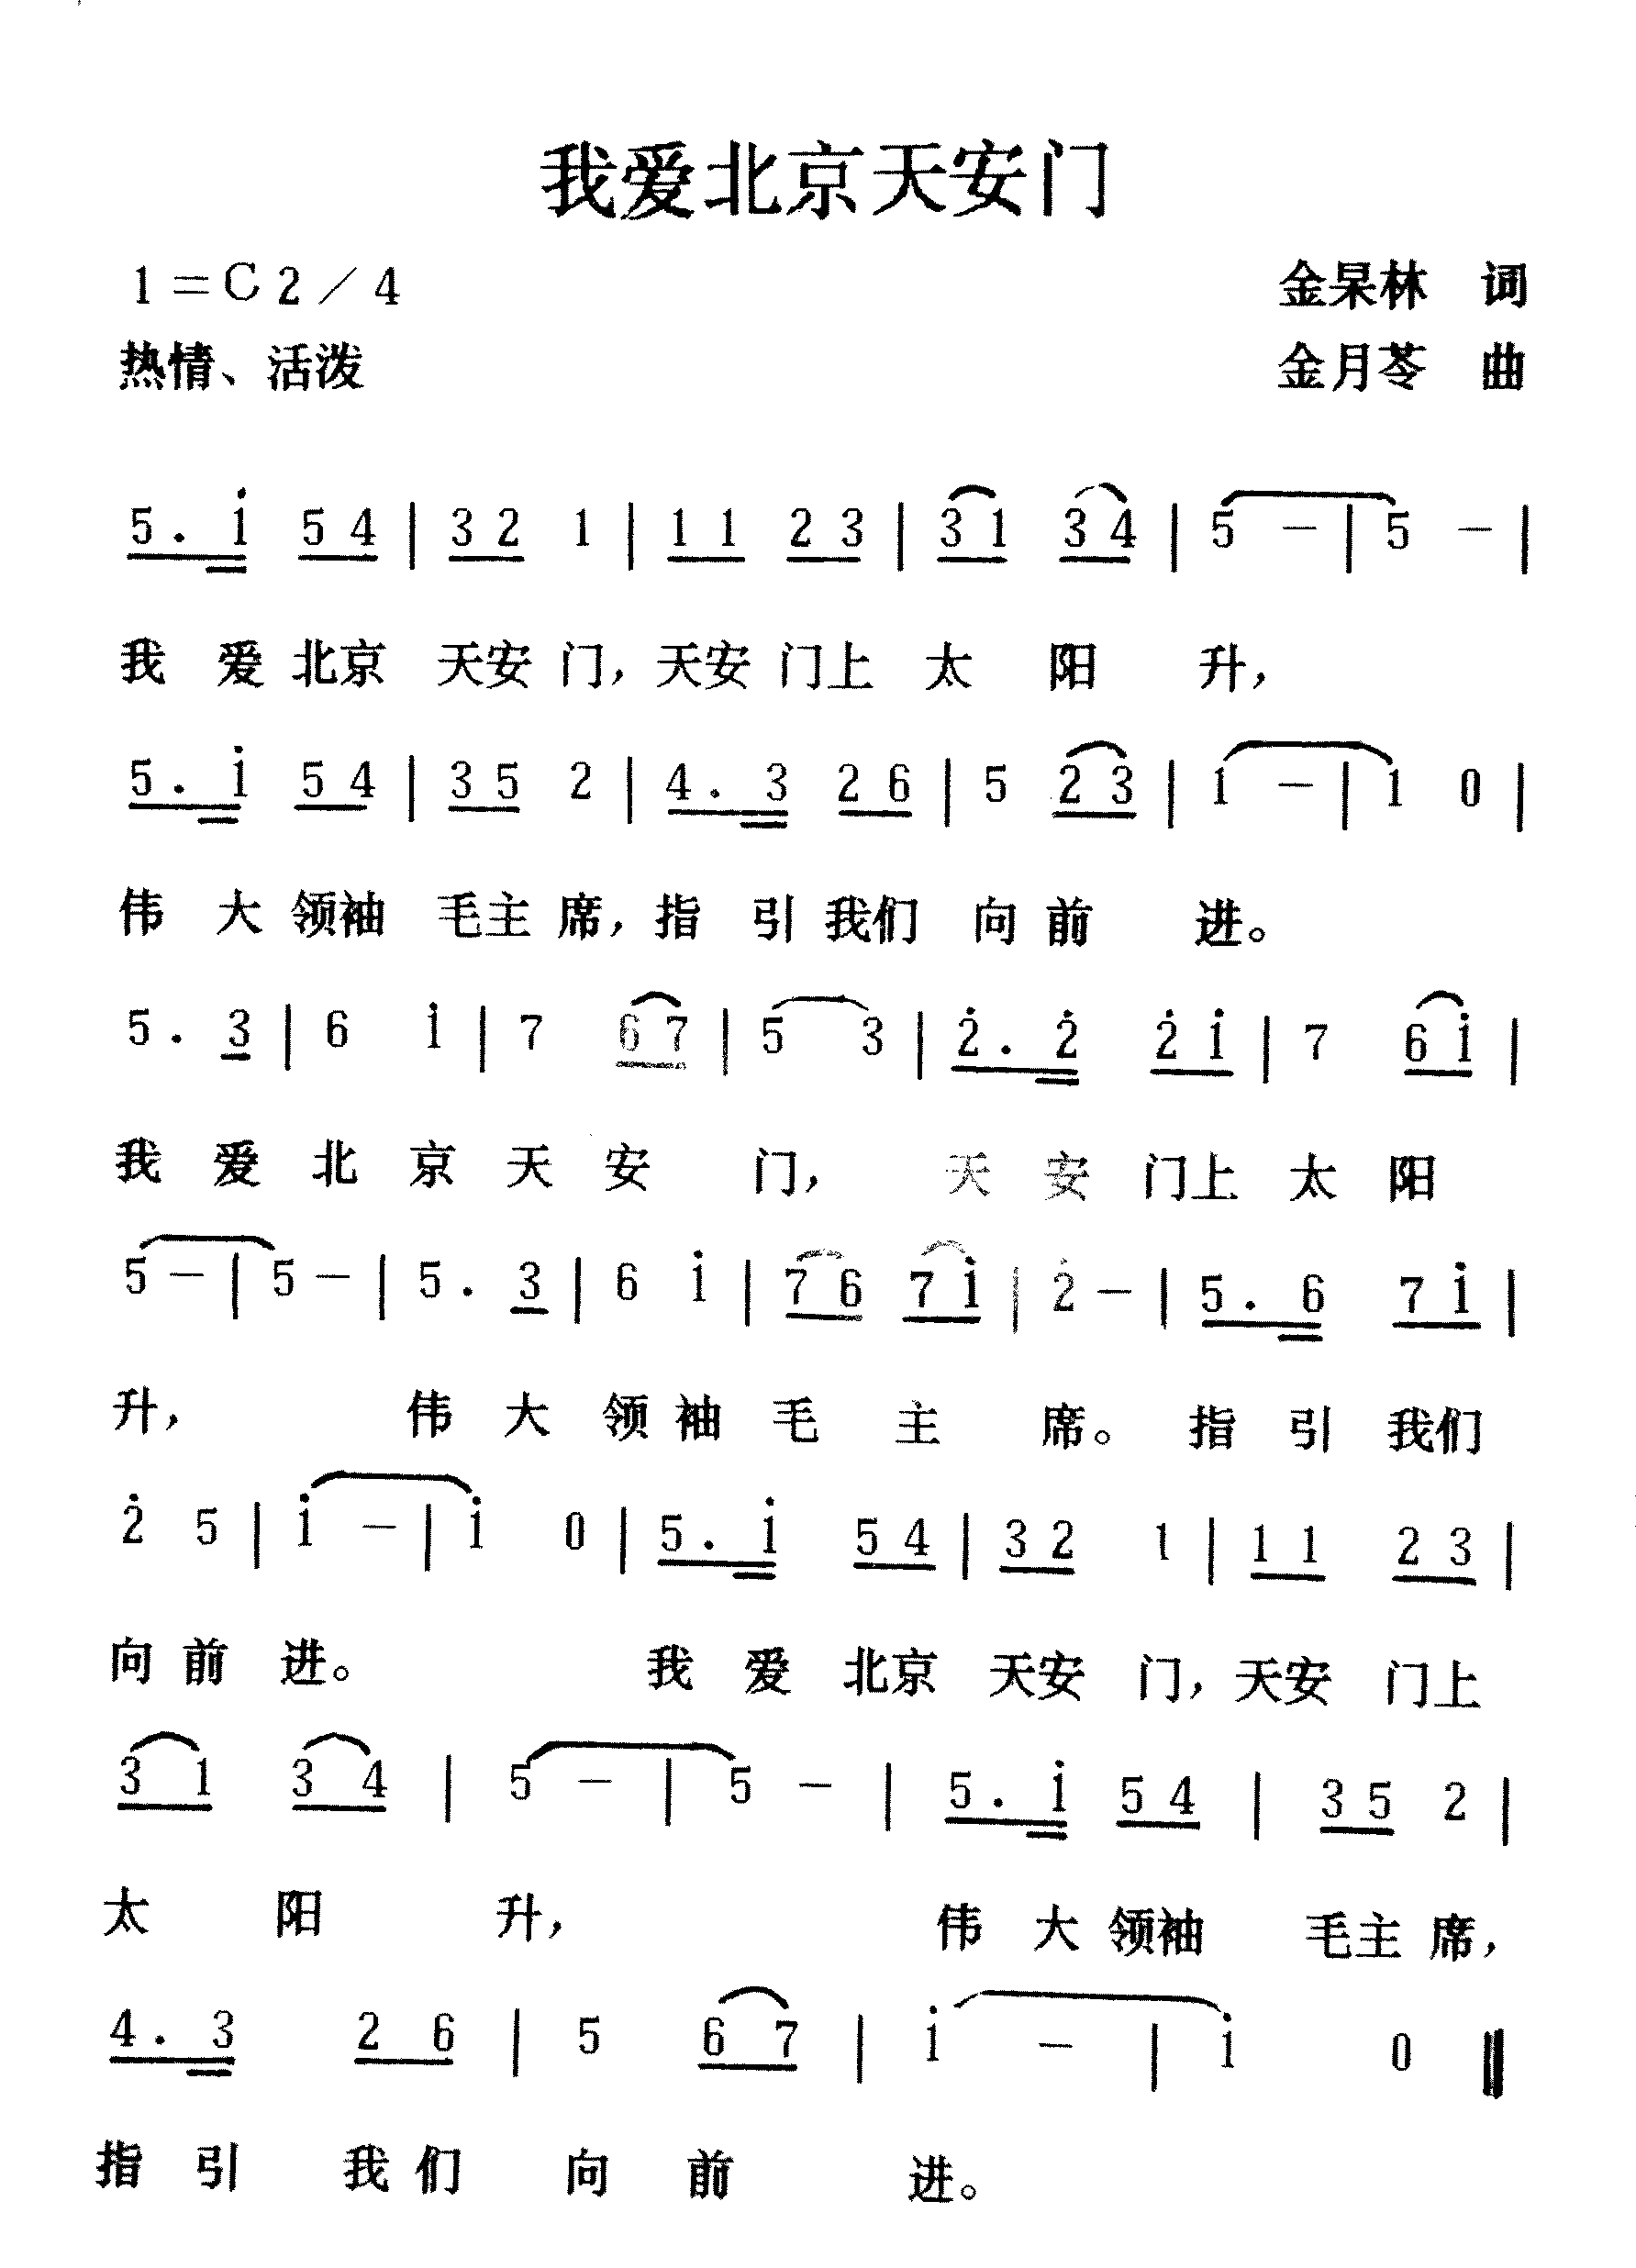 我爱北京天安门
1=C 2/4 金杲林 词
热情、活泼 金月苓 曲
5. i̇ 5 4 | 3 2 1 | 1 1 2 3 | 3 1 3 4 | 5 - | 5 - |
我 爱 北京 天安 门, 天安 门上 太 阳 升,
5. i̇ 5 4 | 3 5 2 | 4. 3 2 6 | 5 2 3 | 1 - | 1 0 |
伟 大 领袖 毛主 席, 指 引 我们 向 前 进。
5. 3 | 6 i̇ | 7 6 7 | 5 3 | 2̇. 2̇ 2̇ i̇ | 7 6 i̇ |
我 爱 北 京 天 安 门, 天 安 门上 太 阳
5 - | 5 - | 5. 3 | 6 i̇ | 7 6 7 i̇ | 2̇ - | 5. 6 7 i̇ |
升, 伟 大 领 袖 毛 主 席。 指 引 我们
2̇ 5 | i̇ - | i̇ 0 | 5. i̇ 5 4 | 3 2 1 | 1 1 2 3 |
向 前 进。 我 爱 北京 天安 门, 天安 门上
3 1 3 4 | 5 - | 5 - | 5. i̇ 5 4 | 3 5 2 |
太 阳 升, 伟 大 领袖 毛主 席,
4. 3 2 6 | 5 6 7 | i̇ - | i̇ 0 ‖
指 引 我 们 向 前 进。